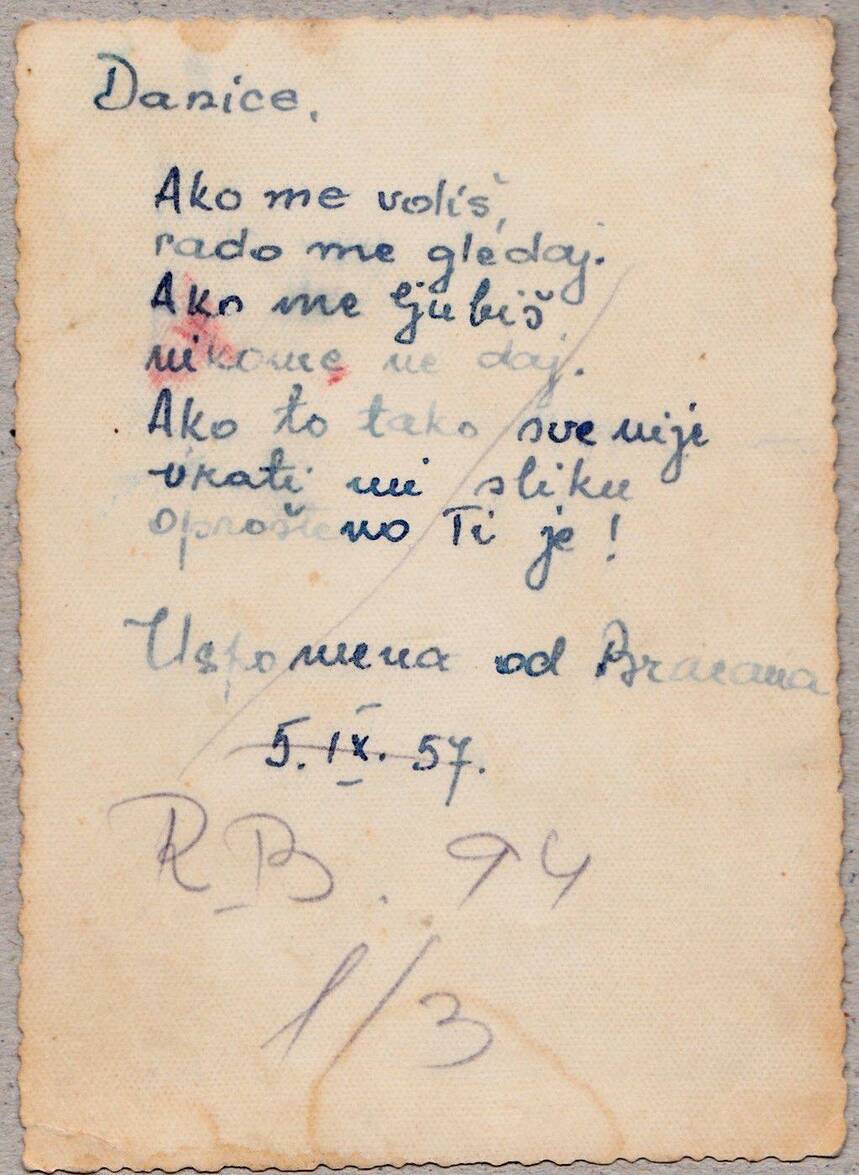 Danice,
Ako me voliš,
rado me glédaj.
Ako me ljubiš
nikome ne daj.
Ako to tako sve nije
vrati mi sliku
oprošteno Ti je!
Uspomena od
5. IX. 57.
R.B. 94
1/3